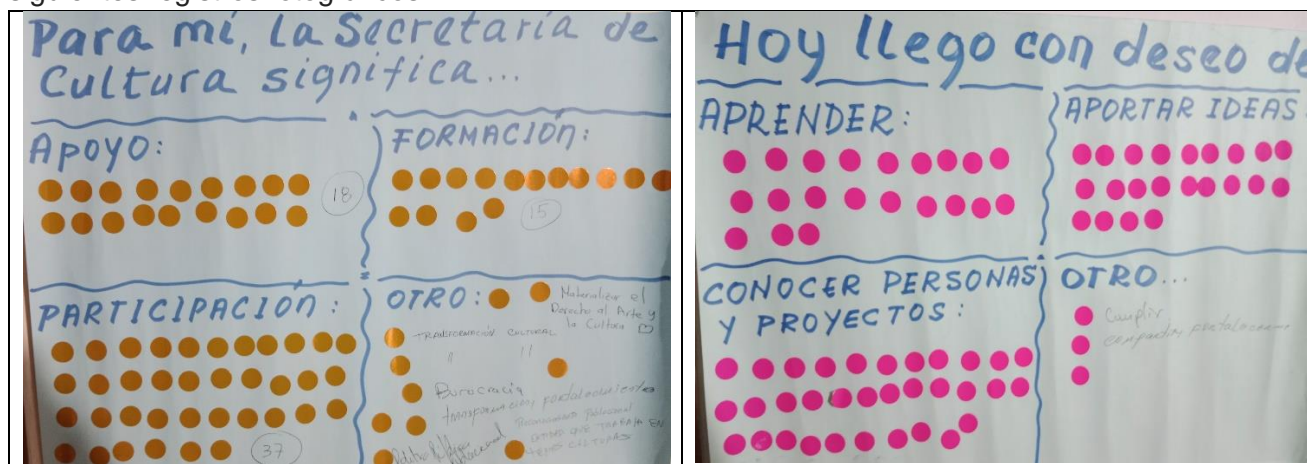 Para mí, La Secretaría de
Cultura significa...
APOYO:
18
FORMACIÓN:
15
PARTICIPACIÓN:
37
OTRO:
Materializar el
Derecho al Arte y
la Cultura
TRANSFORMACIÓN CULTURAL
" "
Burocracia
transformación, fortalecimiento
QUE TRABAJA EN
TEMAS CULTURAS
Hoy llego con deseo de
APRENDER:
APORTAR IDEAS:
CONOCER PERSONAS
Y PROYECTOS:
OTRO...
Cumplir
compartir, fortalecer